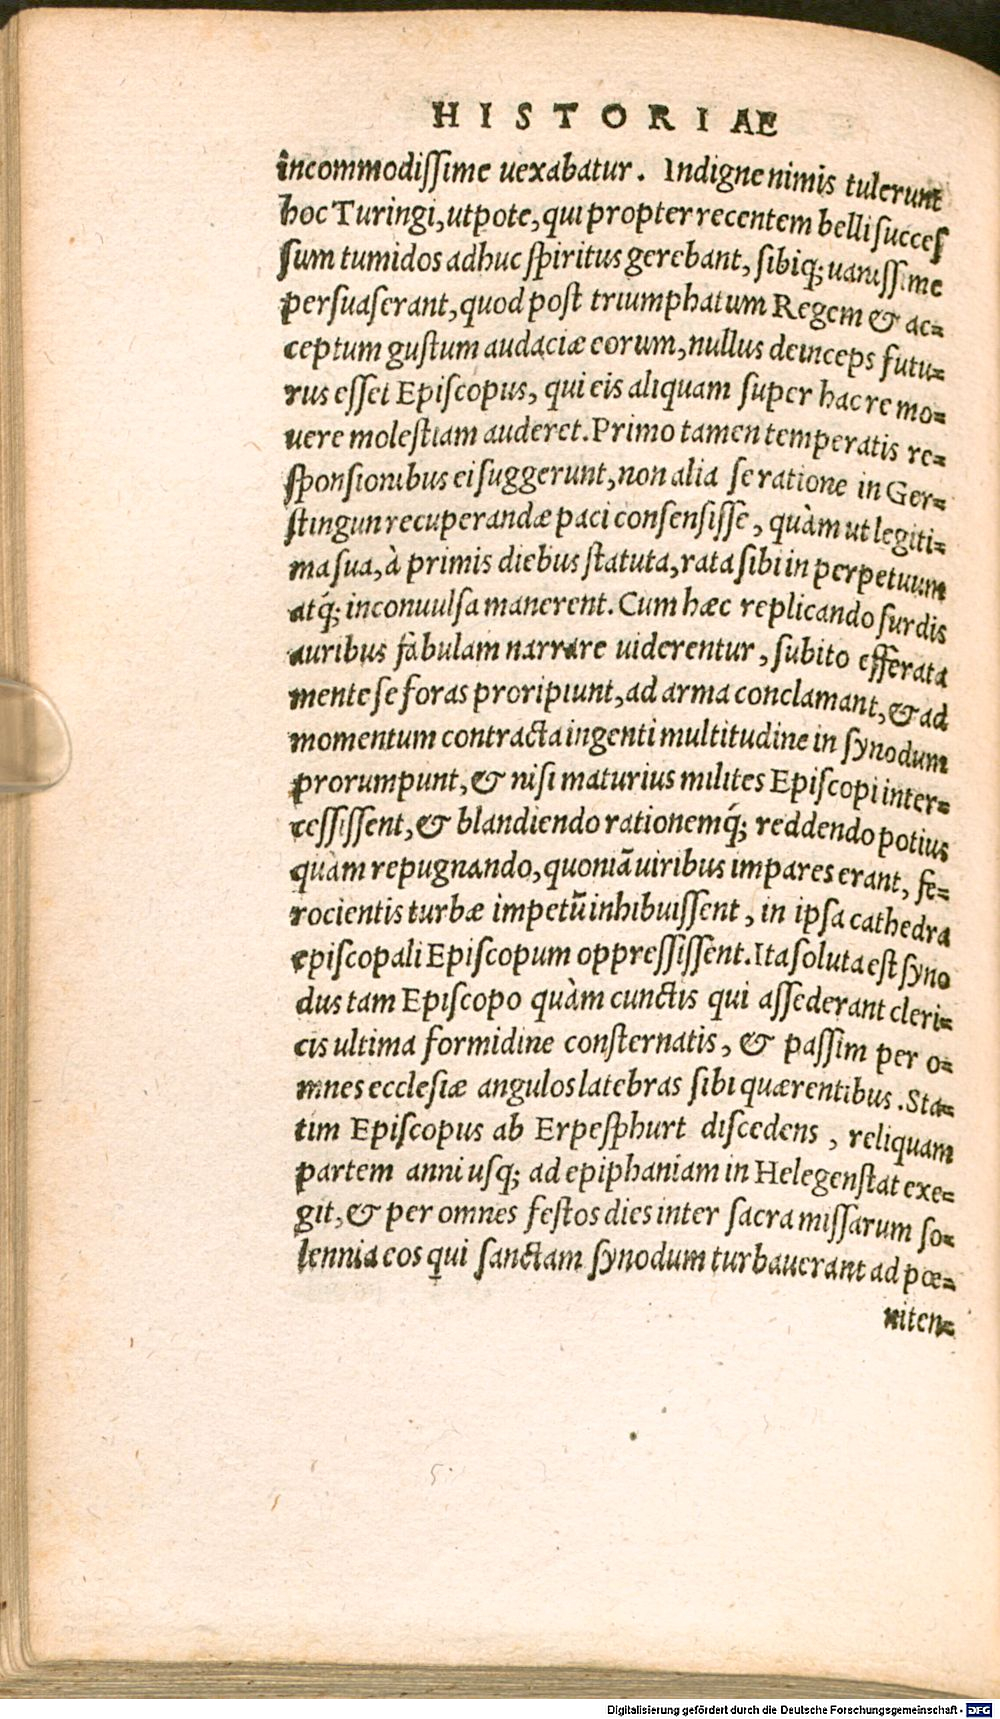 HISTORIAE
incommodissime uexabatur. Indigne nimis tulerunt
hoc Turingi, utpote, qui propter recentem belli succes
sum tumidos adhuc spiritus gerebant, sibiq; uanissime
persuaserant, quod post triumphatum Regem & ac=
ceptum gustum audaciæ eorum, nullus deinceps futu=
rus esset Episcopus, qui eis aliquam super hac re mo=
uere molestiam auderet. Primo tamen temperatis re=
sponsionibus ei suggerunt, non alia se ratione in Ger=
stingun recuperandæ paci consensisse, quàm ut legiti=
ma sua, à primis diebus statuta, rata sibi in perpetuum
atq́; inconuulsa manerent. Cum hæc replicando surdis
auribus fabulam narrare uiderentur, subito efferata
mente se foras proripiunt, ad arma conclamant, & ad
momentum contracta ingenti multitudine in synodum
prorumpunt, & nisi maturius milites Episcopi inter=
cessissent, & blandiendo rationemq́; reddendo potius
quàm repugnando, quoniā uiribus impares erant, fe=
rocientis turbæ impetū inhibuissent, in ipsa cathedra
episcopali Episcopum oppressissent. Ita soluta est syno
dus tam Episcopo quàm cunctis qui assederant cleri=
cis ultima formidine consternatis, & passim per o=
mnes ecclesiæ angulos latebras sibi quærentibus. Sta=
tim Episcopus ab Erpesphurt discedens, reliquam
partem anni usq; ad epiphaniam in Helegenstat exe=
git, & per omnes festos dies inter sacra missarum so=
lennia eos qui sanctam synodum turbauerant ad pœ=
niten=
Digitalisierung gefördert durch die Deutsche Forschungsgemeinschaft - DFG